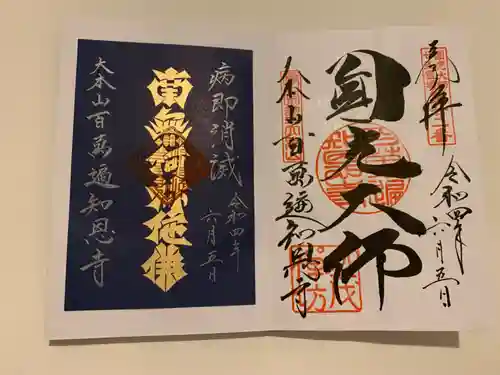 奉拝
令和四年六月五日
圓光大師
大本山百萬遍知恩寺
病即消滅
令和四年六月五日
南無阿弥陀佛
大本山百萬遍知恩寺